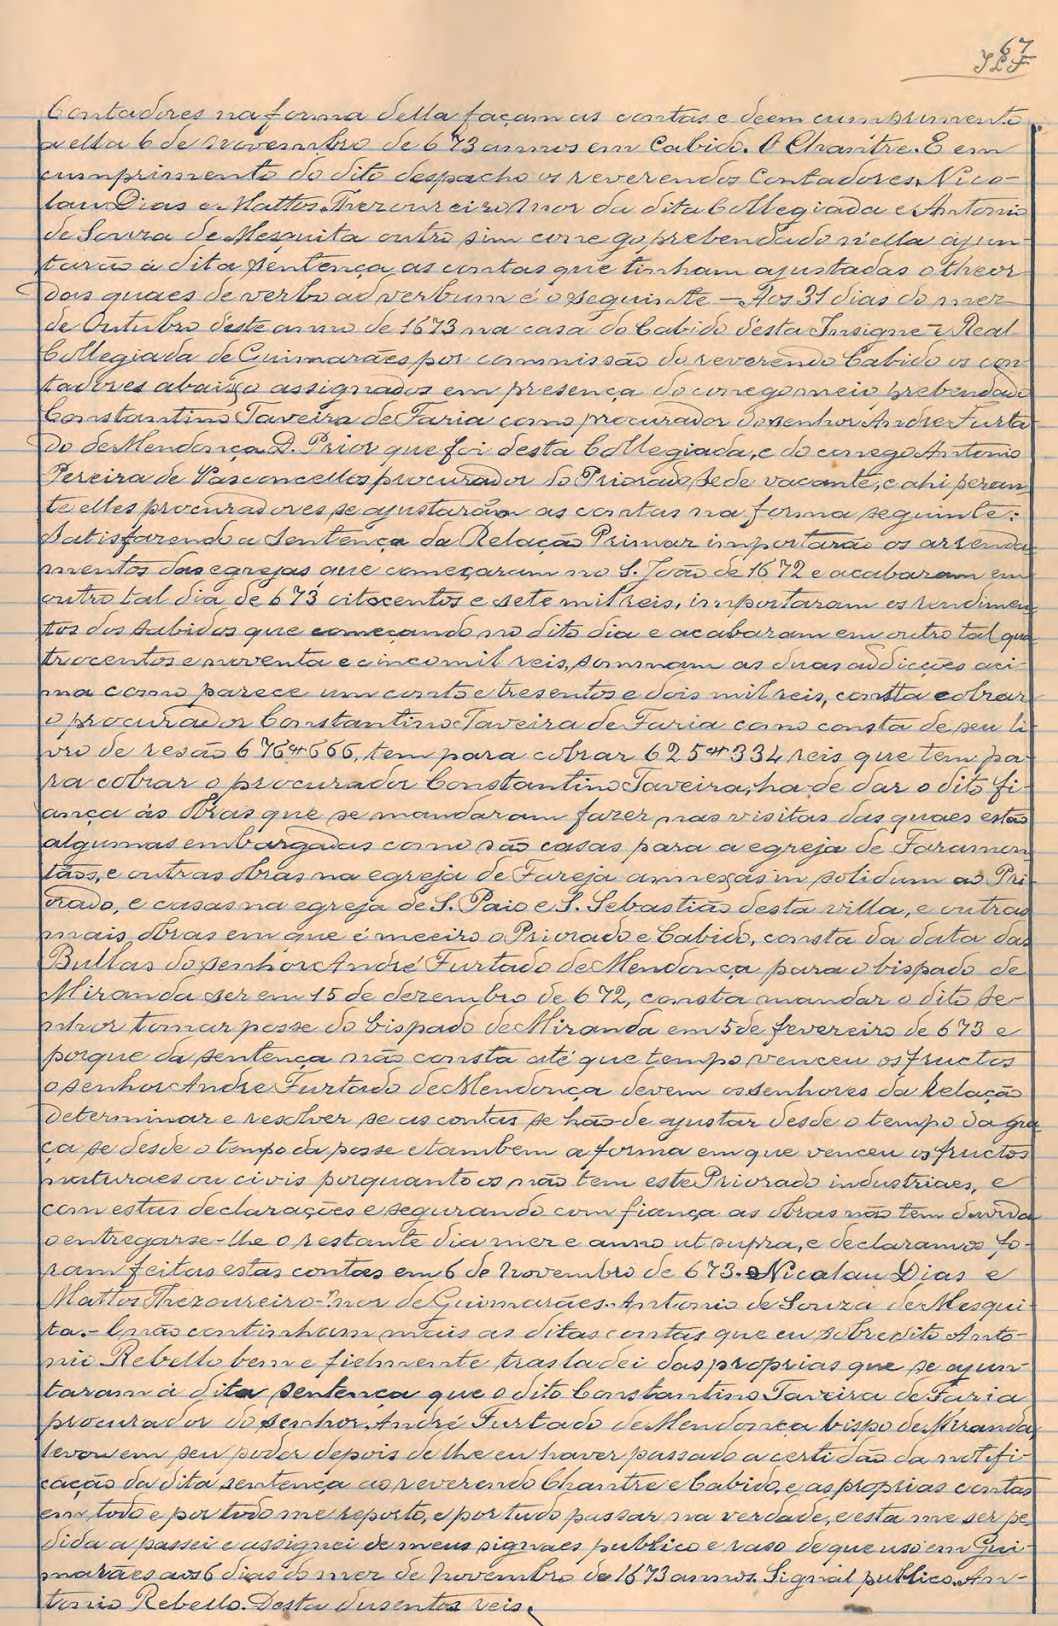 67
JLF
Contadores na forma della façam as contas e deem cumprimento
a ella 6 de novembro de 673 annos em Cabido. O Chantre. E em
cumprimento do dito despacho os reverendos Contadores, Nico-
lau Dias e Mattos Thezoureiro Mor da dita Collegiada e Antonio
de Souza de Mesquita outro sim conego prebendado n'ella ajun-
tarão á dita sentença as contas que tinham ajustadas o theor
das quaes de verbo ad verbum é o seguinte — Aos 31 dias do mez
de Outubro d'este anno de 1673 na casa do Cabido d'esta Insigne e Real
Collegiada de Guimarães por commissão do reverendo Cabido os con-
tadores abaixo assignados em presença do conego meio prebendado
Constantino Taveira de Faria como procurador do senhor Andre Furta-
do de Mendonça D. Prior que foi desta Collegiada, e do conego Antonio
Pereira de Vasconcellos procurador do Priorado Sede vacante, e ahi peran-
te elles procuradores se ajustarão as contas na forma seguinte:
Satisfazendo a sentença da Relação Primaz importarão os arrenda-
mentos das egrejas que começaram no S. João de 1672 e acabaram em
outro tal dia de 673 oitocentos e sete mil reis, importaram os rendimen-
tos dos sabidos que começando no dito dia e acabaram em outro tal qua-
trocentos e noventa e cinco mil reis, sommam as duas addicções aci-
ma como parece um conto e tresentos e dois mil reis, consta cobrar
o procurador Constantino Taveira de Faria como consta de seu li-
vro de resão 676$666, tem para cobrar 625$334 reis que tem pa-
ra cobrar o procurador Constantino Taveira, ha de dar o dito fi-
ança ás obras que se mandaram fazer nas visitas das quaes estão
algumas embargadas como são casas para a egreja de Faramon-
tãos, e outras obras na egreja de Fareja annexas in solidum ao Pri-
orado, e casas na egreja de S. Paio e S. Sebastião desta villa, e outras
mais obras em que é meeiro o Priorado e Cabido, consta da data das
Bullas do senhor André Furtado de Mendonça para o bispado de
Miranda ser em 15 de dezembro de 672, consta mandar o dito se-
nhor tomar posse do bispado de Miranda em 5 de fevereiro de 673 e
porque da sentença não consta até que tempo venceu os fructos
o senhor Andre Furtado de Mendonça devem os senhores da Relação
determinar e resolver se as contas se hão-de ajustar desde o tempo da gra-
ça se desde o tempo da posse e tambem a forma em que venceu os fructos
naturaes ou civis porquanto os não tem este Priorado industriaes, e
com estas declarações e segurando com fiança as obras não tem duvida
o entregarse-lhe o restante dia mez e anno ut supra, e declaramos fo-
ram feitas estas contas em 6 de Novembro de 673. Nicolau Dias e
Mattos Thezoureiro-Mor de Guimarães. Antonio de Souza de Mesqui-
ta. — E não continham mais as ditas contas que eu sobredito Anto-
nio Rebello bem e fielmente trasladei das proprias que se ajun-
taram á dita sentença que o dito Constantino Taveira de Faria
procurador do senhor André Furtado de Mendonça bispo de Miranda
levou em seu poder depois de lhe eu haver passado a certidão da notifi-
cação da dita sentença ao reverendo Chantre e Cabido, e as proprias contas
em todo e por todo me reporto, e por tudo passar na verdade, e esta me ser pe-
dida a passei e assignei de meus signaes publico e raso de que uso em Gui-
marães aos 6 dias do mez de Novembro de 1673 annos. Signal publico. An-
tonio Rebello. Desta dusentos reis.